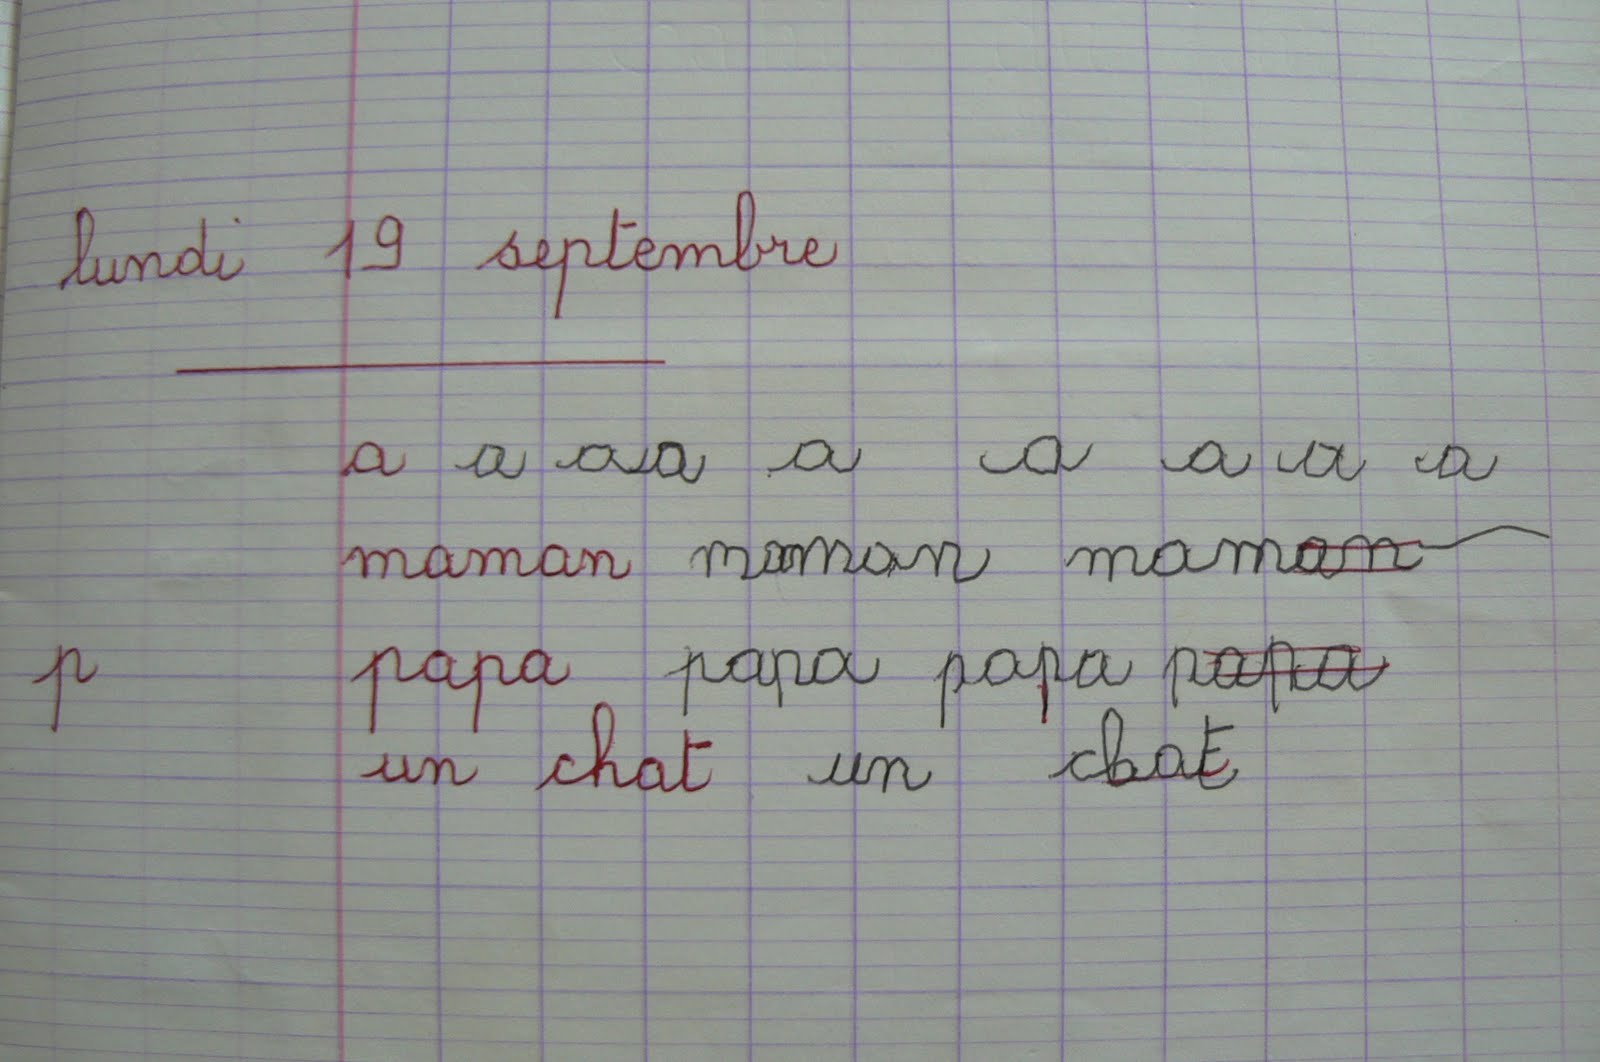 lundi 19 septembre
a a a a a a a a a a
maman maman maman
p papa papa papa papa
un chat un chat